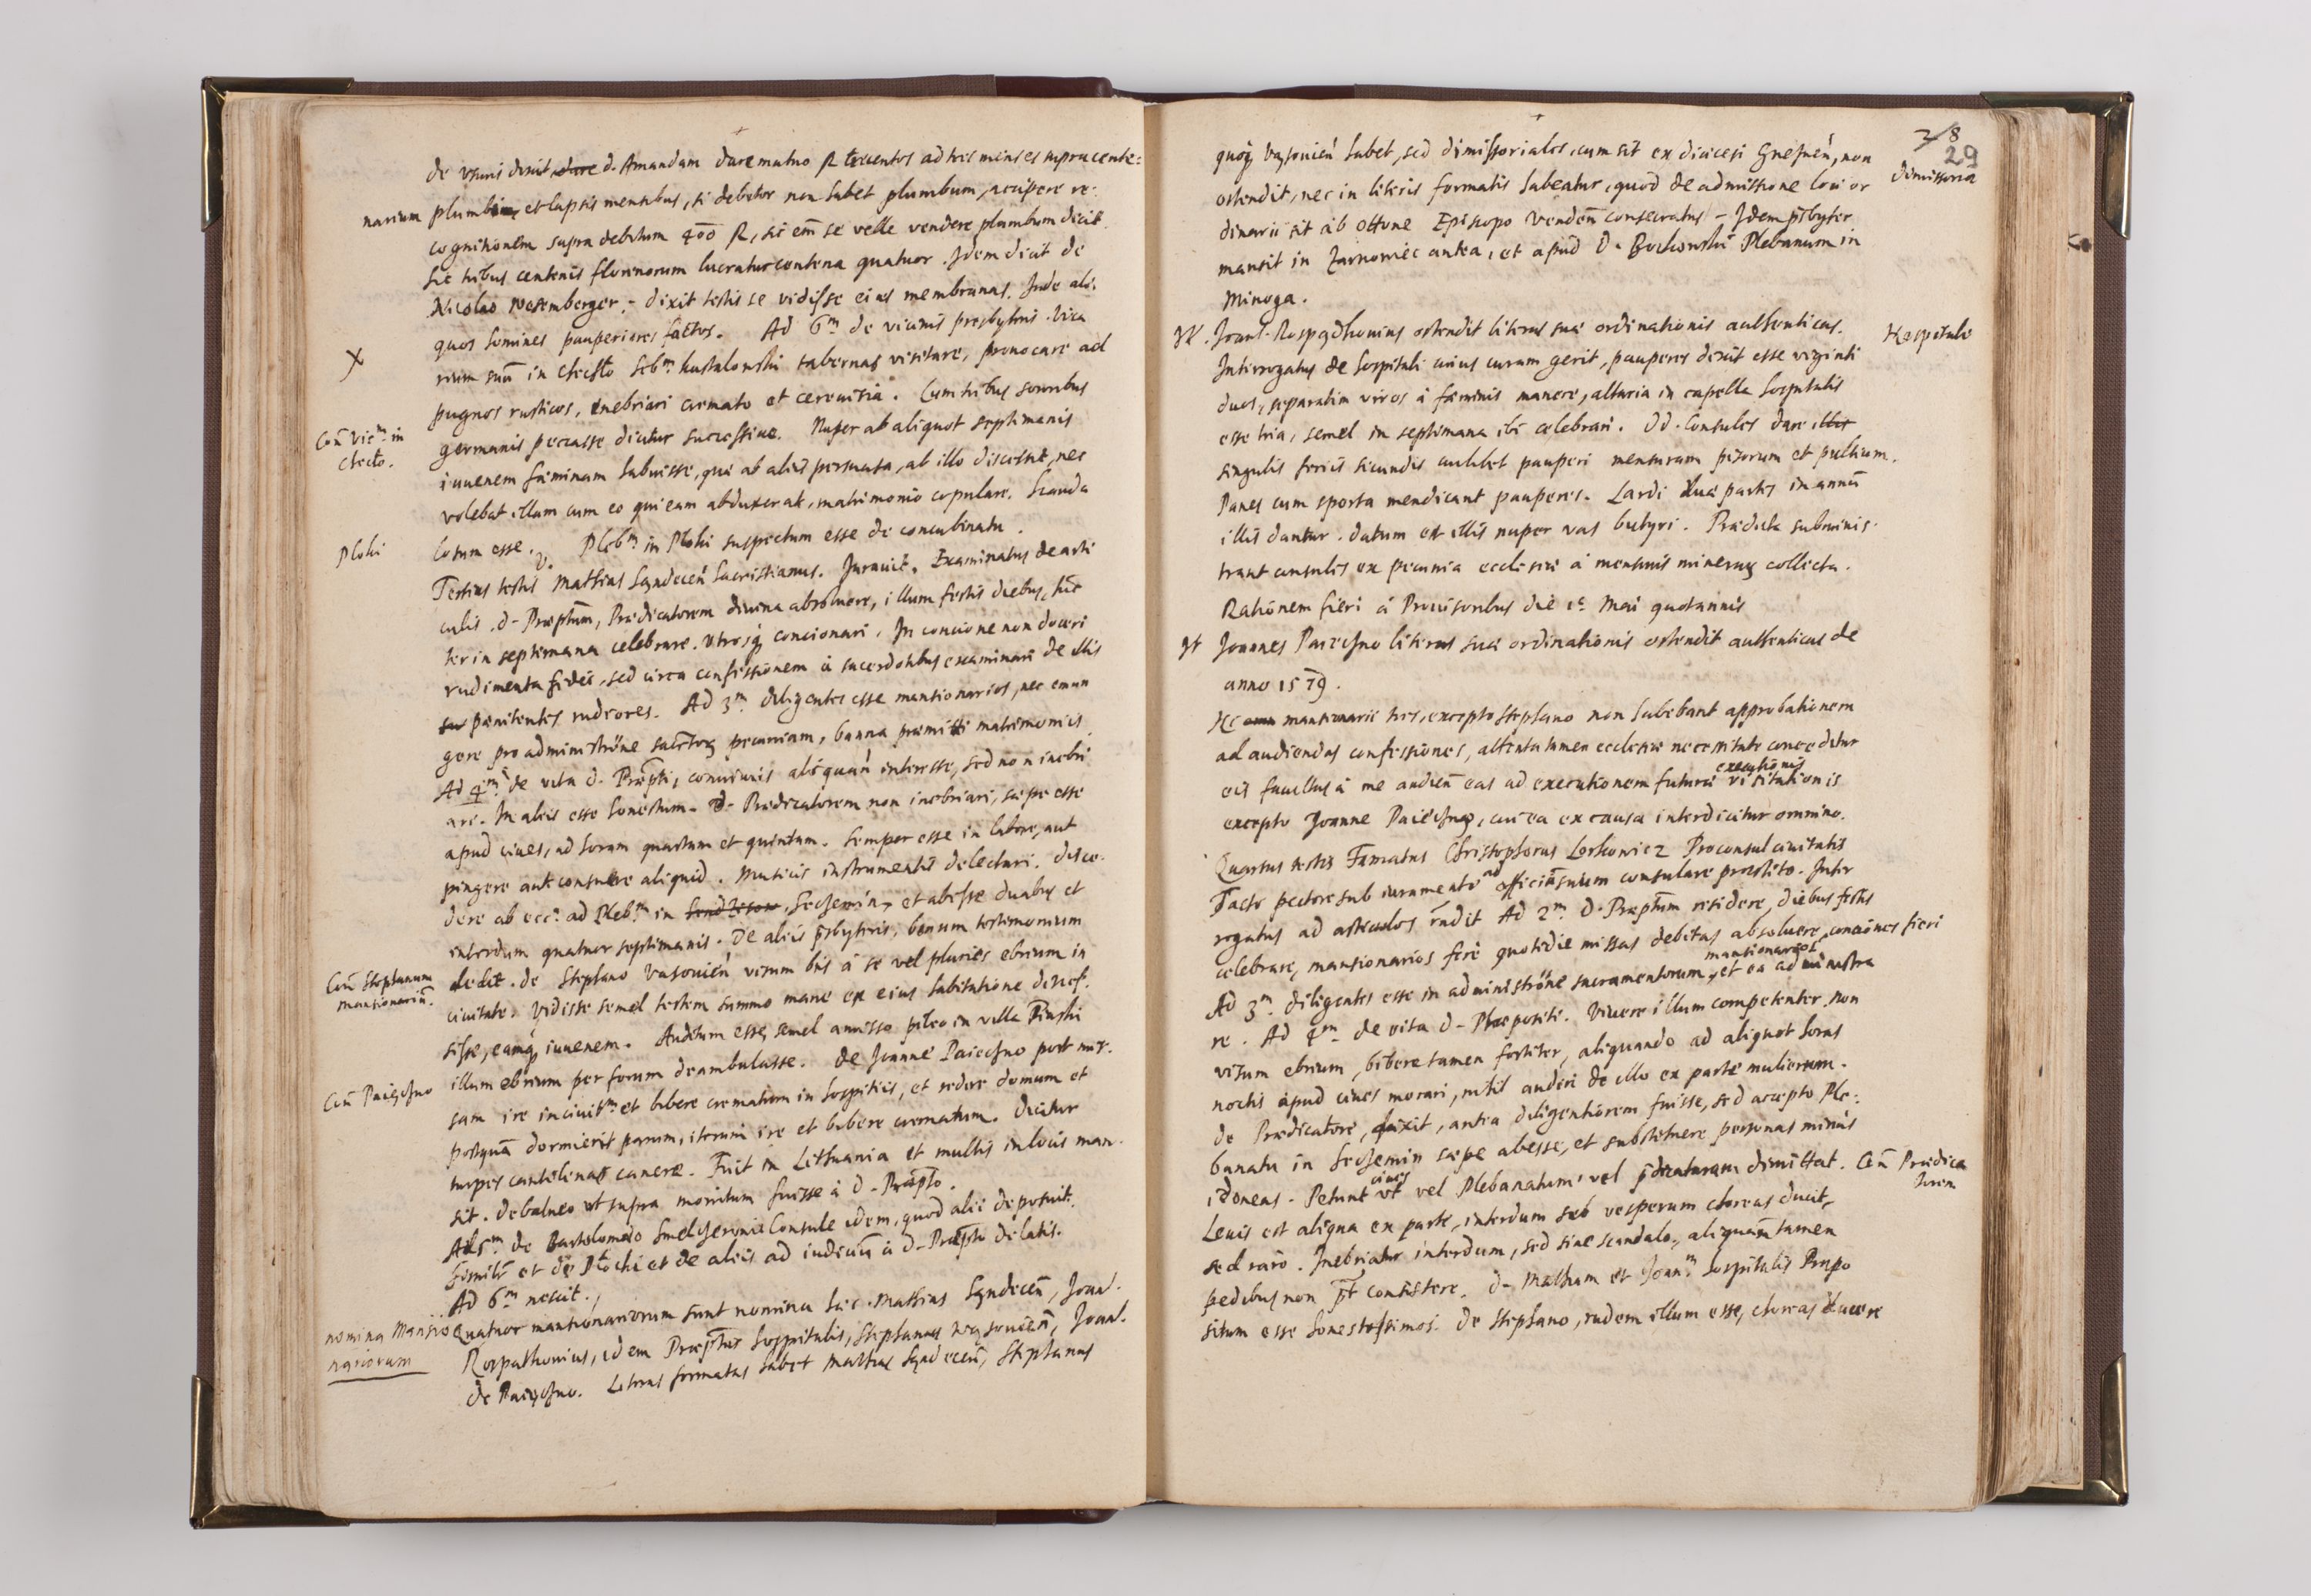 de vsuris dixit dare d. Amandam dare mutuo R trecentos ad tres menses supra cente:
narium plumbi, et lapsis mensibus, si debitor non habet plumbum, accipere re:
cognitionem supra debitum 400 R, sic em̃ se velle vendere plumbum dicit.
Sic tribus centenis florenorum lucratur centena quatuor. Idem dicit de
Nicolao Nesemberger. – dixit testis se vidisse eius membranas. Inde ali:
quos homines pauperiores factos. Ad 6m de vicinis presbyteris. Vica
X
rium suũ in Chechlo Sebm Kustalowski tabernas visitare, prouocare ad
pugnas rusticos, inebriari cremato et ceruisia. Cum tribus sororibus
Coñ Vicm in
Chechlo.
germanis peccasse dicitur successiue. Nuper ab aliquot septimanis
iuuenem fæminam habuisse, quæ ab aliis persuasa, ab illo discessit, nec
volebat illam cum eo qui eam abduxerat, matrimonio copulare. Scanda
losum esse. Plebm in Ploki suspectum esse de concubinatu.
Ploki
Tertius testis Mathias Sandeceñ Sacristianus. Iurauit. Examinatus de arti
culis. d. Præptum, Prædicatorem diuina absoluere, illum festis diebus, hũc
ter in septimana celebrare. Vtrosq3 concionari. In concione non doceri
rudimenta fidei, sed circa confessionem à sacerdotibus examinari de illis
pænitentes rudiores. Ad 3m diligentes esse mantionarios, nec emun
gere pro administrõne sacrtorum pecuniam, banna præmitti matrimoniis.
Ad 4m de vita d. Præpti, conuiuiis aliquañ interesse, sed non inebri
ari. In aliis esse honestum. d. Prædicatorem non inebriari, sæpe esse
apud ciues, ad horam quartam et quintam. Semper esse in labore, aut
pingere aut consuere aliquid. Musicis instrumentis delectari. disce:
dere ab ecca ad Plebm in Secemin, et abesse duabus et
interdum quatuor septimanis. De aliis p̃sbyteris, bonum testimonium
Coñ Stephanum
mantionariũ.
dedit. de Stephano Vasouień visum bis à se vel pluries ebrium in
ciuitate. Vidisse semel testem summo mane ex eius habitatione di
sisse, eamq3 iuuenem. Auditum esse, semel amisso pileo in villa
illum ebrium per forum deambulasse. De Joanne Paięchno post mis:
Coñ Paięchno
sam ire in ciuitm et bibere crematum in hospitiis, et redire domum et
postquã dormierit parum, iterum ire et bibere crematum. Dicitur
turpes cantilenas canere. Fuit in Lithuania et multis in locis man
sit. de balneo vt supra monitum fuisse à d. Præpto.
Ad 5m de Bartolomeo Consule idem, quod alii deposuit.
Similr et de Plochi et de aliis ad iudiciũ à d. Præpto delatis.
Ad 6m nescit.
nomina Mansio
nariorum
Quatuor mantionariorum sunt nomina hæc. Mathias Sandeceñ, Joan.
Rospathonius, idem Præptus hospitalis, Stephanus Vasouień, Joan.
de Paięchno. Literas formatas habet Mathias Sandeceñ, Stephanus
28
29
quoq3 Vasouień habet, sed dimissoriales, cum sit ex diæcesi Gnesneñ, non
dimissoria
ostendit, nec in literis formatis habeatur, quod de admissione loci or
dinarii sit ab Ottone Episcopo Vendeñ consecratus – Idem p̃sbyter
mansit in Zarnowiec antea, et apud D. Plebanum in
Minoga.
Joan. Rospądhonius ostendit literas suæ ordinationis authenticas.
Hospitale
Interrogatus de hospitali cuius curam gerit, pauperes dixit esse viginti
duos, separatim viros à fæminis manere, altaria in capella hospitalis
esse tria, semel in septimana ibi celebrari. DD. Consules dare illis
singulis feriis secundis cuilibet pauperi mensuram pisorum et pultium.
Panes cum sporta mendicant pauperes. Lardi duæ partes in annũ
illis dantur. datum est illis nuper vas butyri. Prædicta subminis:
trant consules ex pecunia ecclesiæ à mensuris minerarum collecta.
Rationem fieri à Prouisoribus die 1a Mai quotannis
Joannes Paiechno literas suæ ordinationis ostendit authenticas de
anno 1579.
Hi mantionarii tres, excepto Stephano non habebant approbationem
ad audiendas confessiones, attenta tamen ecclesiæ necessitate conceditur
executionis
eis facultas à me audieñ eas ad executionem futuræ visitationis
excepto Joanne Paiechno, cui ea ex causa interdicitur omnino.
Quartus testis Famatus Christophorus Loskowicz Proconsul ciuitatis
Tacto pectore sub iuramento ad officiũ suum consulare præstito. Inter
rogatus ad articulos r̃ndit Ad 2m D. Præptum residere, diebus festis
celebrare, mansionarios ferè quotidie missas debitas absoluere, conciones fieri
mantionarios
Ad 3m diligentes esse in administrõne sacramentorum, et ea administra
re. Ad 4m de vita d. Præpositi. Viuere illum competenter. non
visum ebrium, bibere tamen fortiter, aliquando ad aliquot horas
noctis apud ciues morari, nihil audiri de illo ex parte mulierum.
de Prædicatore, dixit, antea diligentiorem fuisse, sed accepto Ple:
banatu in Secemin sæpe abesse, et substituere personas minus
ciues
idoneas. Petunt vt vel Plebanatum, vel p̃dicaturam dimittat.
Coñ Prædica
torem
Leuis est aliqua ex parte, interdum sub vesperum choreas ducit,
sed raro. Inebriatur interdum, sed sine scandalo, aliquañ tamen
pedibus non p̃t consistere. D. Mathiam et Joanm hospitalis Præpo
situm esse honestissimos. De Stephano, rudem illum esse, choreas ducere